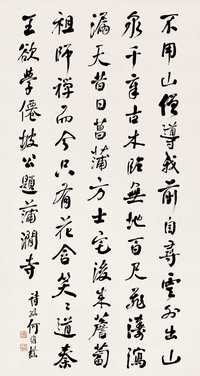 不用山僧導我前自尋雲外出山
泉千章古木臨無地百尺飛濤瀉
漏天昔日菖蒲方士宅後来薝蔔
祖師禪而今只有花含笑〻道秦
王欲學僊坡公題蒲澗寺
詩孫何維樸